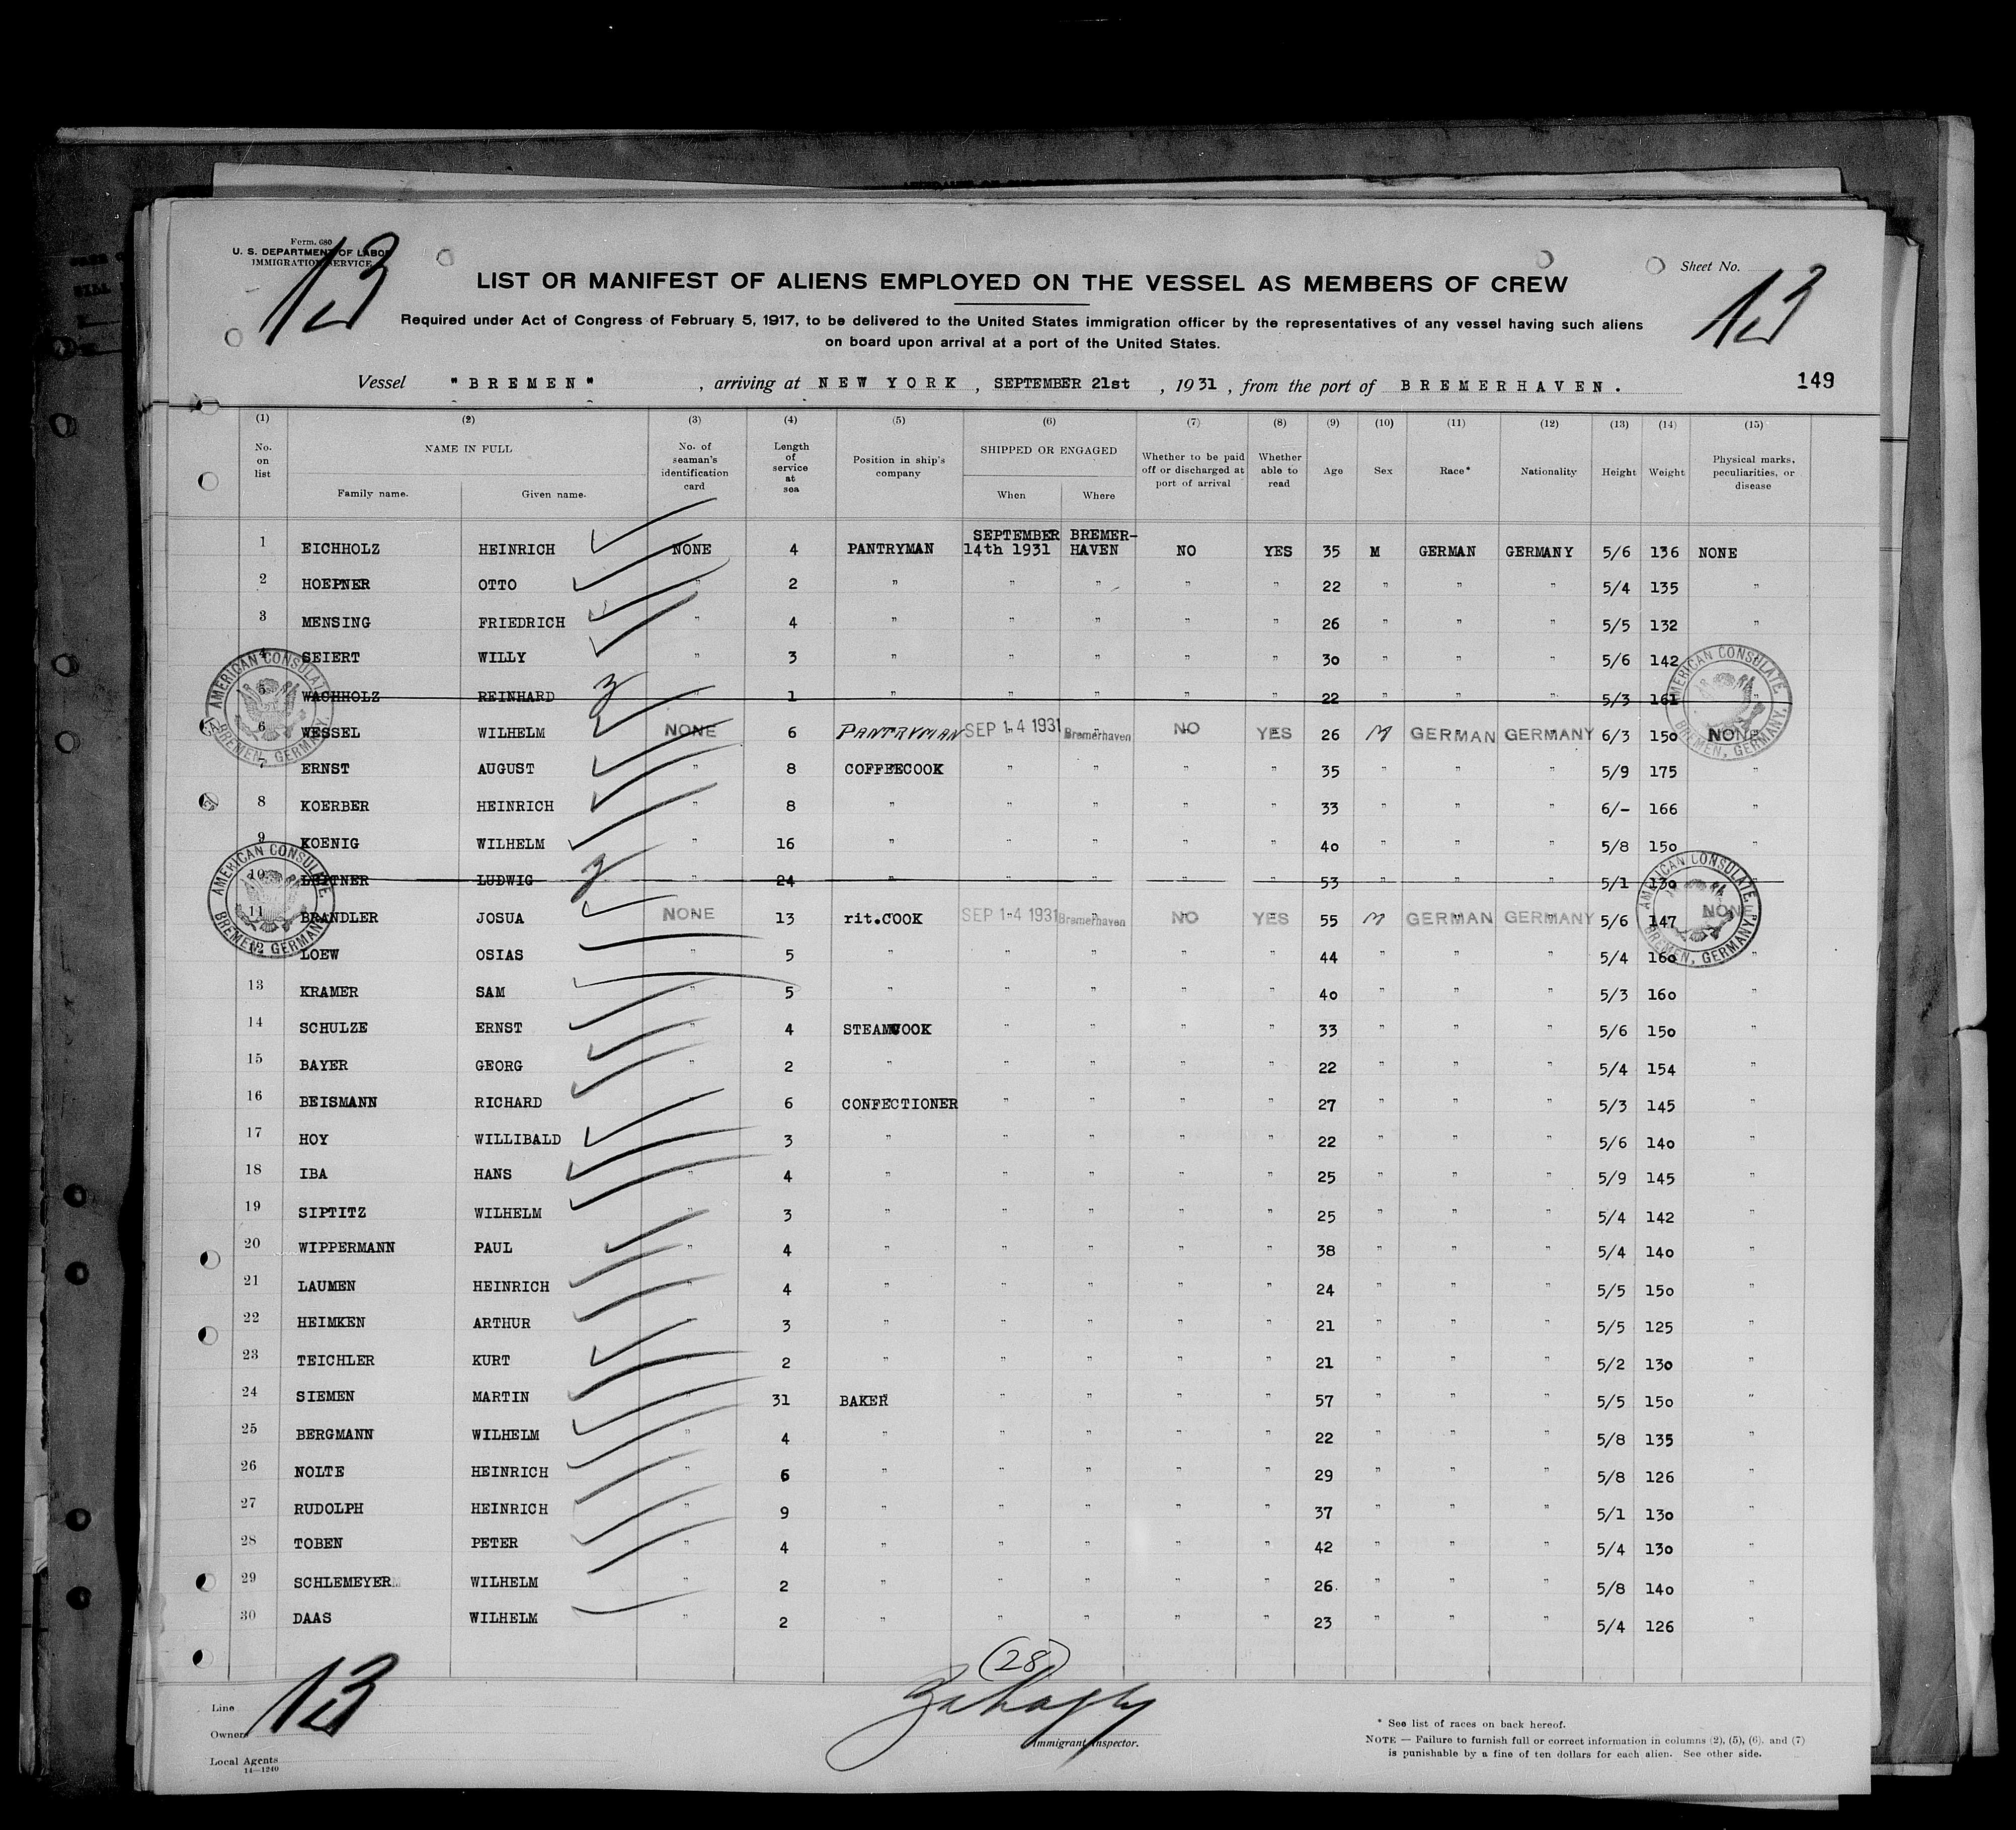 Form. 680
U. S. DEPARTMENT OF LABOR
IMMIGRATION SERVICE
13
Sheet No.
13
LIST OR MANIFEST OF ALIENS EMPLOYED ON THE VESSEL AS MEMBERS OF CREW
Required under Act of Congress of February 5, 1917, to be delivered to the United States immigration officer by the representatives of any vessel having such aliens
on board upon arrival at a port of the United States.
Vessel "BREMEN" , arriving at NEW YORK , SEPTEMBER 21st , 1931 , from the port of BREMERHAVEN.
149
(1) (2) (3) (4) (5) (6) (7) (8) (9) (10) (11) (12) (13) (14) (15)
No. on list NAME IN FULL Family name. Given name. No. of seaman's identification card Length of service at sea Position in ship's company SHIPPED OR ENGAGED When Where Whether to be paid off or discharged at port of arrival Whether able to read Age Sex Race* Nationality Height Weight Physical marks, peculiarities, or disease
1 EICHHOLZ HEINRICH NONE 4 PANTRYMAN SEPTEMBER 14th 1931 BREMER-HAVEN NO YES 35 M GERMAN GERMANY 5/6 136 NONE
2 HOEPNER OTTO " 2 " " " " " 22 " " " 5/4 135 "
3 MENSING FRIEDRICH " 4 " " " " " 26 " " " 5/5 132 "
4 SEIERT WILLY " 3 " " " " " 30 " " " 5/6 142
5 WACHHOLZ REINHARD " 1 " " " " " 22 " " " 5/3 161 "
6 WESSEL WILHELM NONE 6 PANTRYMAN SEP 14 1931 Bremerhaven NO YES 26 M GERMAN GERMANY 6/3 150 NONE
7 ERNST AUGUST " 8 COFFEECOOK " " " " 35 " " " 5/9 175 "
8 KOERBER HEINRICH " 8 " " " " " 33 " " " 6/- 166 "
9 KOENIG WILHELM " 16 " " " " " 40 " " " 5/8 150 "
10 LEITNER LUDWIG " 24 " " " " " 53 " " " 5/1 130
11 BRANDLER JOSUA NONE 13 rit.COOK SEP 14 1931 Bremerhaven NO YES 55 M GERMAN GERMANY 5/6 147 NONE
12 LOEW OSIAS " 5 " " " " " 44 " " " 5/4 160 "
13 KRAMER SAM " 5 " " " " " 40 " " " 5/3 160 "
14 SCHULZE ERNST " 4 STEAMCOOK " " " " 33 " " " 5/6 150 "
15 BAYER GEORG " 2 " " " " " 22 " " " 5/4 154 "
16 BEISMANN RICHARD 6 CONFECTIONER " " " " 27 " " " 5/3 145 "
17 HOY WILLIBALD 3 " " " " " 22 " " " 5/6 140 "
18 IBA HANS " 4 " " " " " 25 " " " 5/9 145 "
19 SIPTITZ WILHELM " 3 " " " " " 25 " " " 5/4 142 "
20 WIPPERMANN PAUL " 4 " " " " " 38 " " " 5/4 140 "
21 LAUMEN HEINRICH " 4 " " " " " 24 " " " 5/5 150 "
22 HEIMKEN ARTHUR 3 " " " " " 21 " " " 5/5 125 "
23 TEICHLER KURT 2 " " " " " 21 " " " 5/2 130 "
24 SIEMEN MARTIN " 31 BAKER " " " " 57 " " " 5/5 150 "
25 BERGMANN WILHELM " 4 " " " " " 22 " " " 5/8 135 "
26 NOLTE HEINRICH " 6 " " " " " 29 " " " 5/8 126 "
27 RUDOLPH HEINRICH " 9 " " " " " 37 " " " 5/1 130 "
28 TOBEN PETER " 4 " " " " " 42 " " " 5/4 130 "
29 SCHLEMEYER WILHELM " 2 " " " " " 26. " " " 5/8 140 "
30 DAAS WILHELM " 2 " " " " " 23 " " " 5/4 126 "
AMERICAN CONSULATE BREMEN, GERMANY.
AMERICAN CONSULATE BREMEN, GERMANY.
AMERICAN CONSULATE BREMEN, GERMANY.
AMERICAN CONSULATE BREMEN, GERMANY.
(28)
13
Line
Owners
Local Agents
14—1240
Immigrant Inspector.
* See list of races on back hereof.
NOTE — Failure to furnish full or correct information in columns (2), (5), (6), and (7)
is punishable by a fine of ten dollars for each alien. See other side.